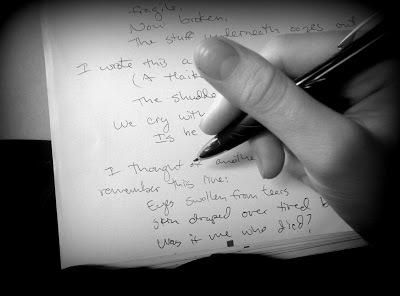 fragile.
Now broken.
The stuff underneath oozes out
I wrote this a
(A Haik
The shudde
We cry with
Is he
I thought of another
remember this line:
Eyes swollen from tears
skin draped over tired b
Was it me who died?